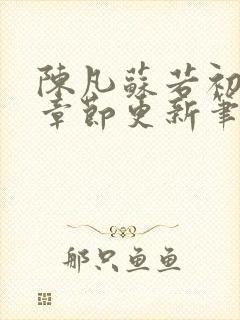 陳凡蘇若初
章節更新筆
那只鱼鱼